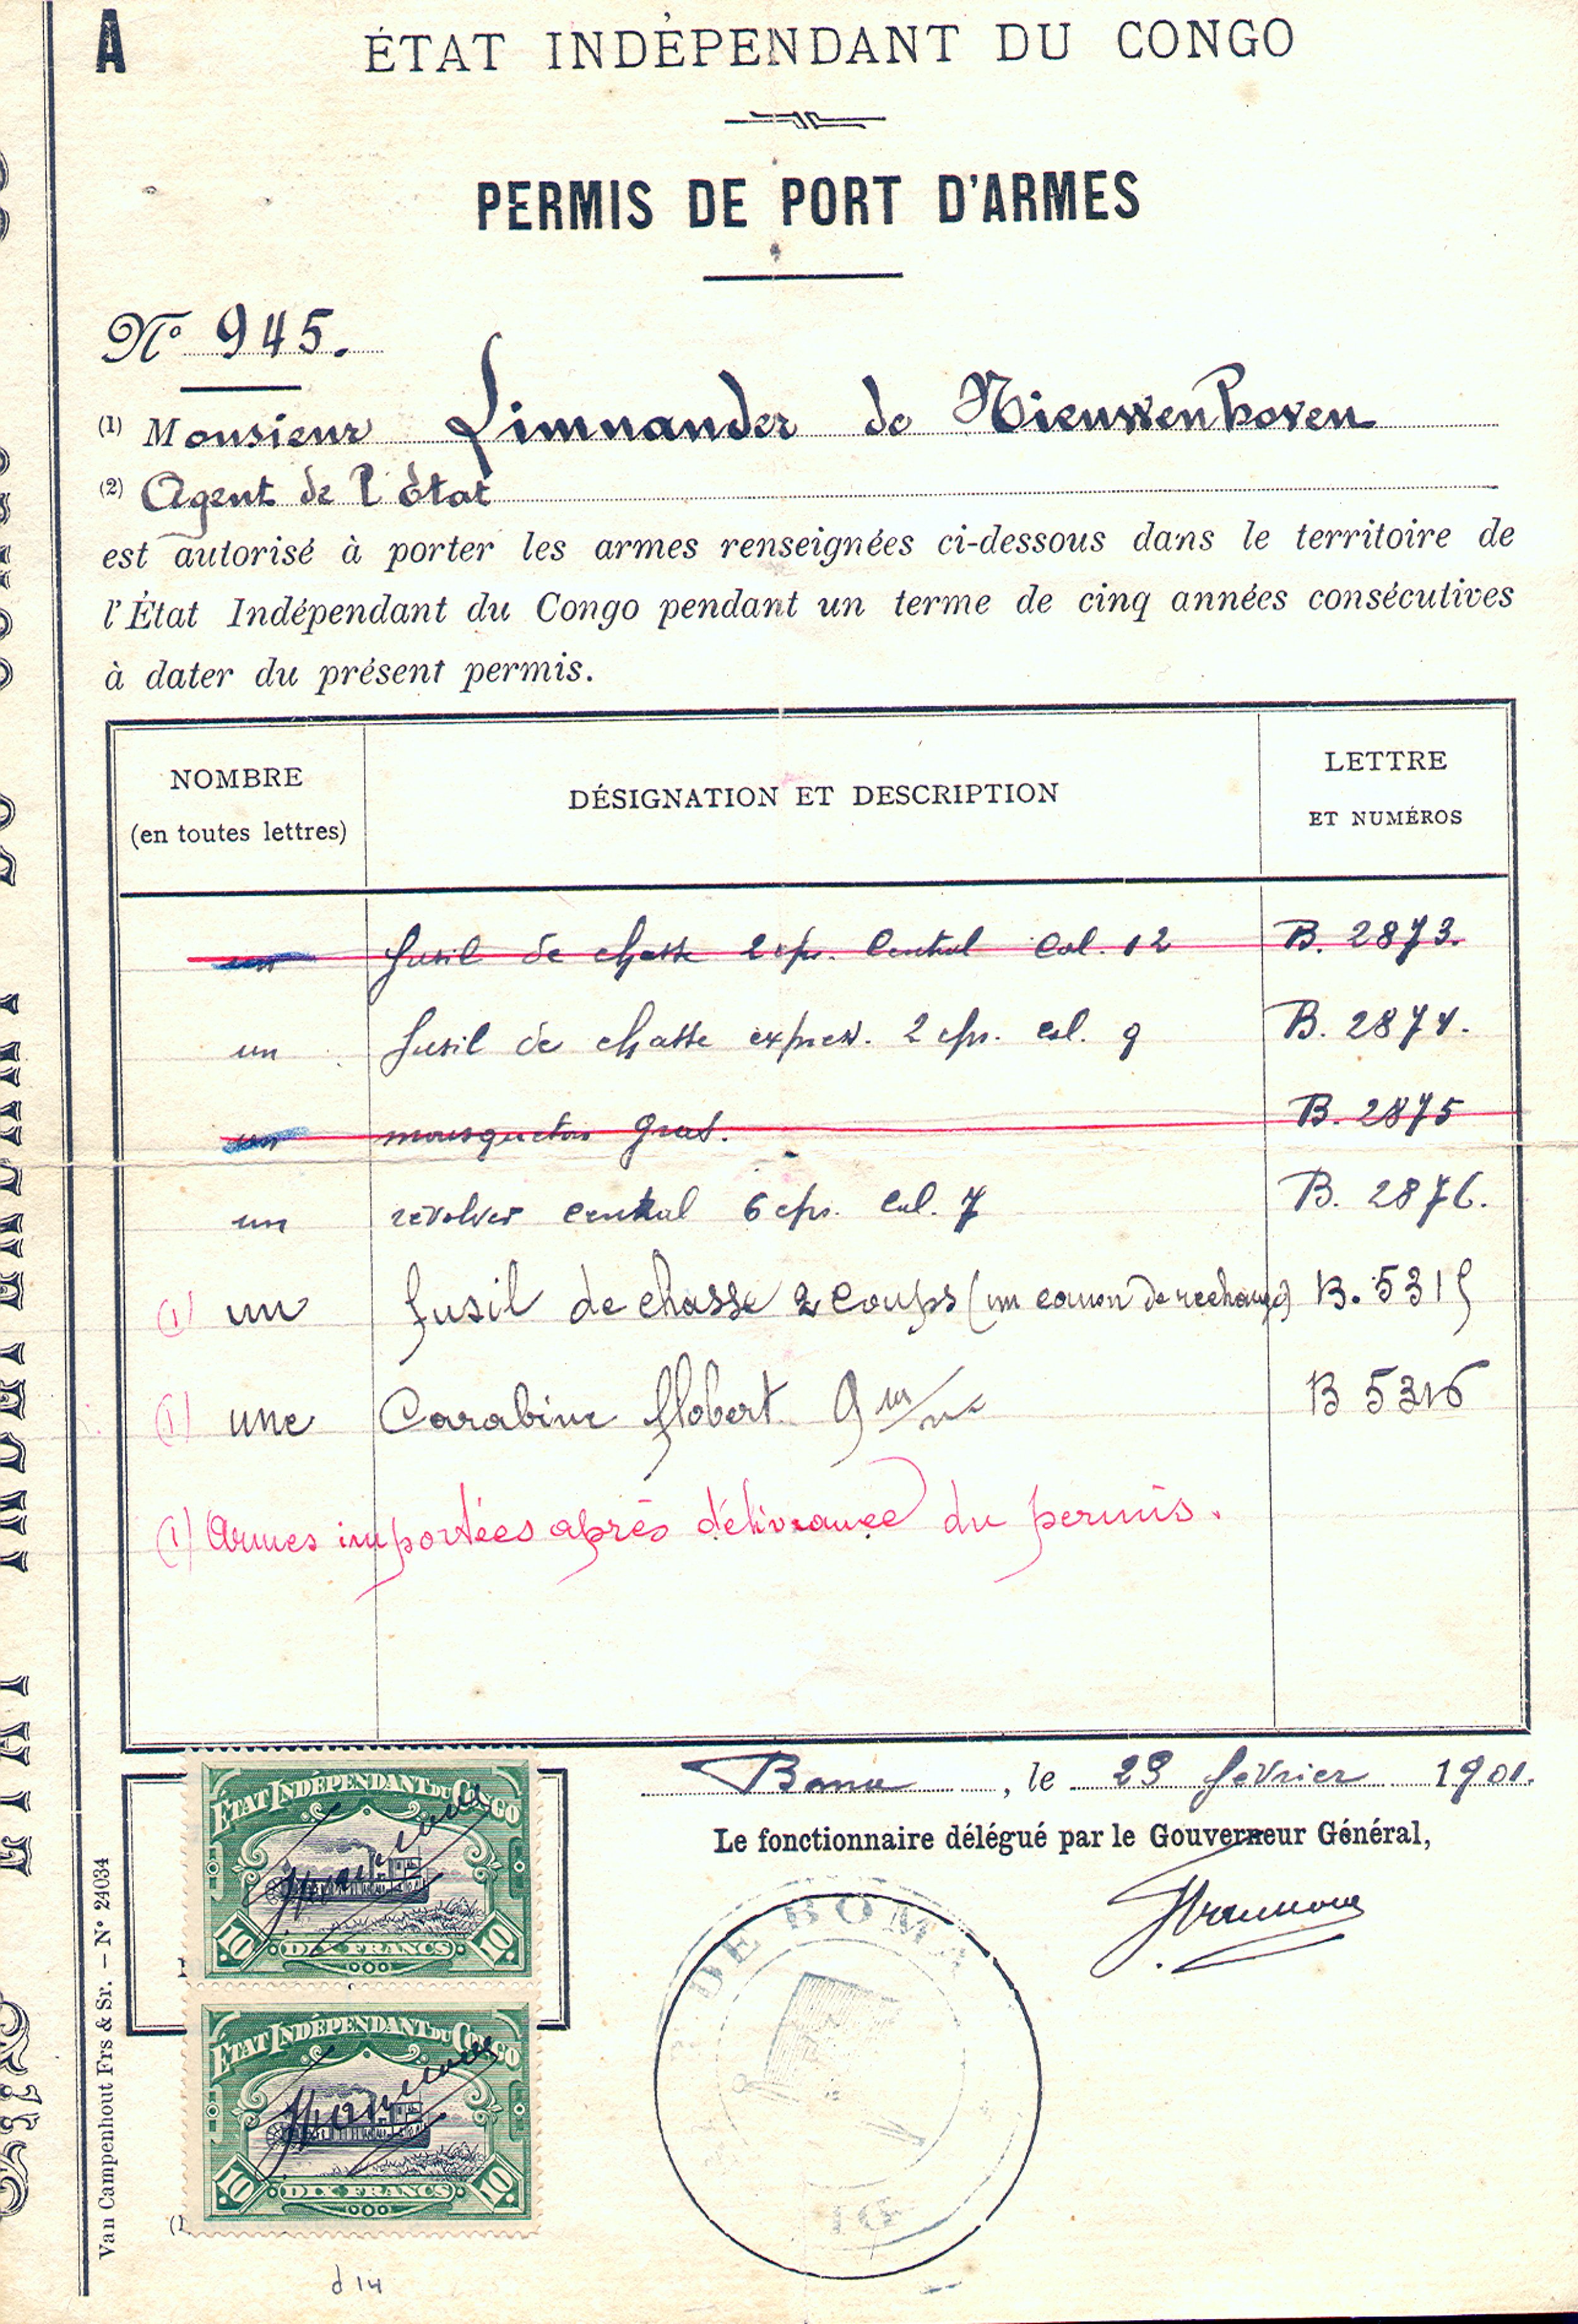 A
ÉTAT INDÉPENDANT DU CONGO
PERMIS DE PORT D'ARMES
No 945.
(1) Monsieur Limnander de Nieuwenhoven
(2) Agent de l'État
est autorisé à porter les armes renseignées ci-dessous dans le territoire de
l'État Indépendant du Congo pendant un terme de cinq années consécutives
à dater du présent permis.
NOMBRE
(en toutes lettres)
DÉSIGNATION ET DESCRIPTION
LETTRE
ET NUMÉROS
un fusil de chasse 2 cps. Central Cal. 12 B. 2873.
un fusil de chasse express. 2 cps. cal. 9 B. 2874.
un mousqueton Gras. B. 2875
un revolver central 6 cps. Cal. 7 B. 2876.
(1) un fusil de chasse 2 coups (un canon de rechange) B. 5315
(1) une Carabine flobert 9 m/m B 5316
(1) Armes importées après délivrance du permis.
Boma, le 23 février 1901.
Le fonctionnaire délégué par le Gouverneur Général,
ÉTAT INDÉPENDANT DU CONGO
10 DIX FRANCS 10
ÉTAT INDÉPENDANT DU CONGO
10 DIX FRANCS 10
DE BOMA
Van Campenhout Frs & Sr. — N° 24034
(1
d 14